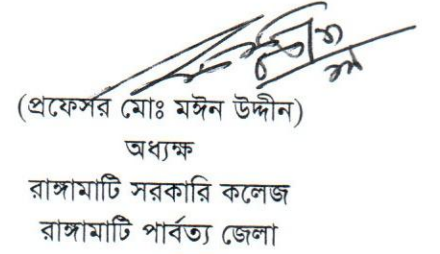 (প্রফেসর মোঃ মঈন উদ্দীন)
অধ্যক্ষ
রাঙ্গামাটি সরকারি কলেজ
রাঙ্গামাটি পার্বত্য জেলা